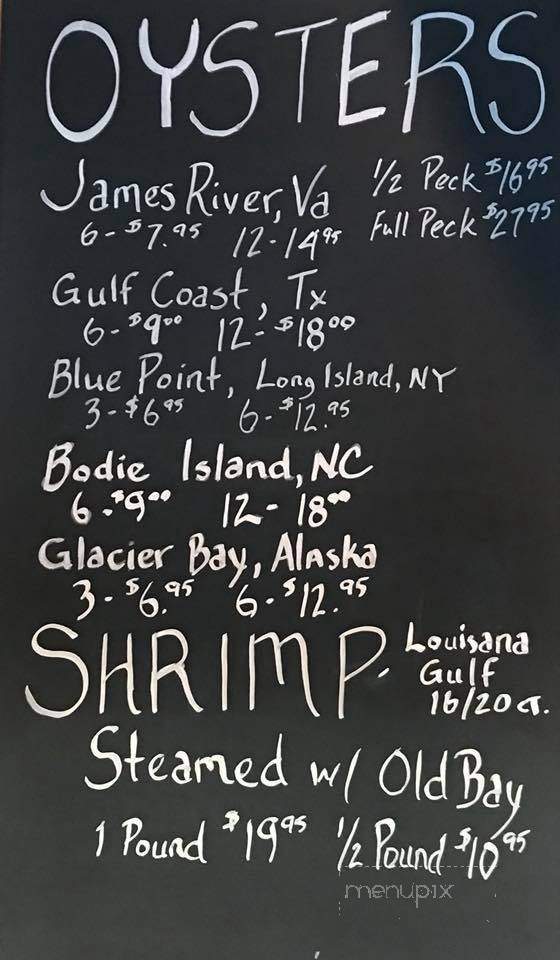 OYSTERS
James River, Va 1/2 Peck $16.95
6-$7.95 12-14.95 Full Peck $27.95
Gulf Coast, Tx
6-$9.00 12-$18.00
Blue Point, Long Island, NY
3-$6.95 6-$12.95
Bodie Island, NC
6-$9.00 12-18.00
Glacier Bay, Alaska
3-$6.95 6-$12.95
SHRIMP- Louisana
Gulf
16/20 ct.
Steamed w/ Old Bay
1 Pound $19.95 1/2 Pound $10.95
menupix